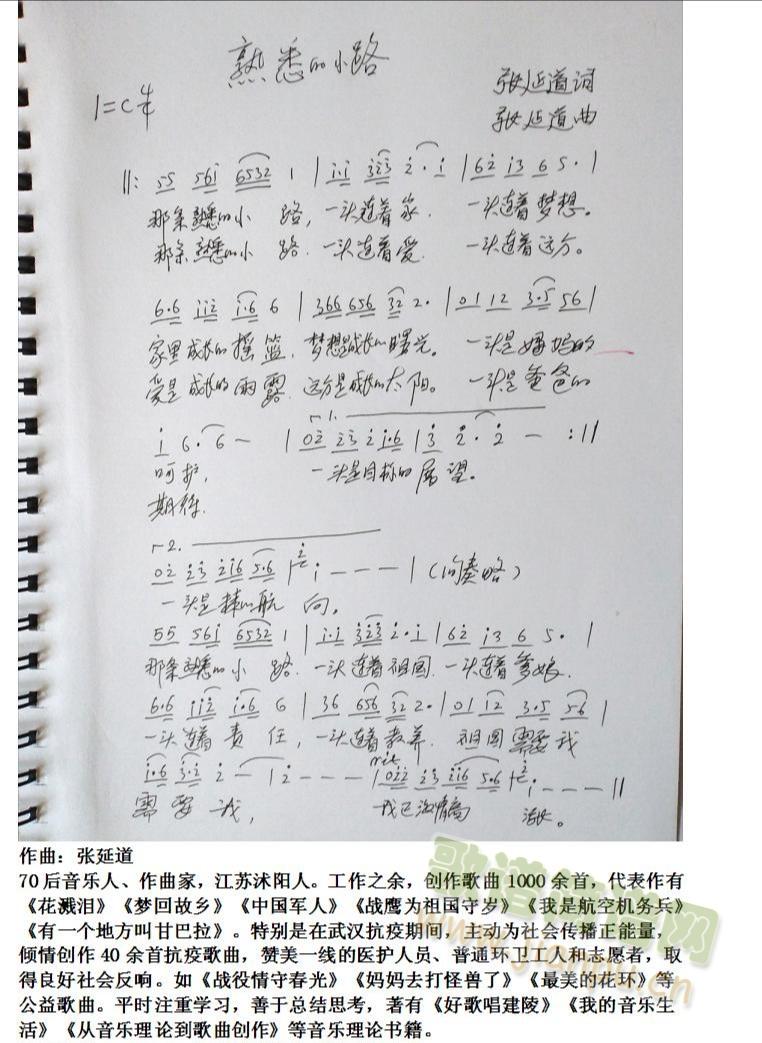 熟悉的小路
1=C 4/4
张延道词
张延道曲
‖: 55 561 6532 1 | 1·1 323 2·1 | 62 13 6 5· |
那条熟悉的小 路，一头连着家. 一头连着梦想。
那条熟悉的小 路. 一头连着爱. 一头连着远方。
6·6 112 1·6 6 | 366 656 32 2· | 01 12 3·5 56 |
家是成长的摇篮. 梦想是成长的曙光。 一头是妈妈的
爱是成长的雨露. 远方是成长的太阳。 一头是爸爸的
1 6· 6 — | 02 23 2 1·6 | 3 2· 2 — :‖
1.
呵护, 一头是目标的展望。
期待.
2.
02 23 216 5·6 | 1 — — — | (间奏略)
一头是 航 向.
55 561 6532 1 | 1·1 323 2·1 | 62 13 6 5· |
那条熟悉的小 路. 一头连着祖国. 一头连着爹娘.
6·6 112 1·6 6 | 36 656 32 2· | 01 12 3·5 56 |
一头连着责任, 一头连着教养. 祖国需要我
rit
1·6 3·2 2 — | 2 — — — | 022 23 216 5·6 | 1 — — — ‖
需要我, 我已 满 。
作曲：张延道
70后音乐人、作曲家，江苏沭阳人。工作之余，创作歌曲1000余首，代表作有
《花溅泪》《梦回故乡》《中国军人》《战鹰为祖国守岁》《我是航空机务兵》
《有一个地方叫甘巴拉》。特别是在武汉抗疫期间，主动为社会传播正能量，
倾情创作40余首抗疫歌曲，赞美一线的医护人员、普通环卫工人和志愿者，取
得良好社会反响。如《战役情守春光》《妈妈去打怪兽了》《最美的花环》等
公益歌曲。平时注重学习，善于总结思考，著有《好歌唱建陵》《我的音乐生
活》《从音乐理论到歌曲创作》等音乐理论书籍。